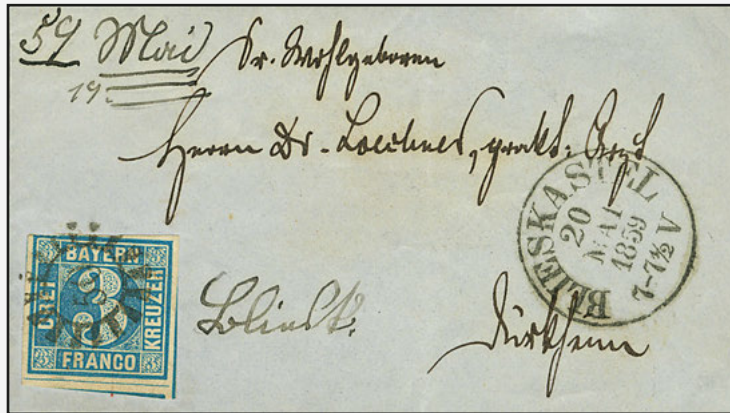 59 Mai
19.
Sr. Wohlgeboren
Herrn Dr. prakt: Arzt
BLIESKASTEL
20
MAI
1859
7-7½ V
BAYERN
DREI
3
KREUZER
FRANCO
Dürkheim